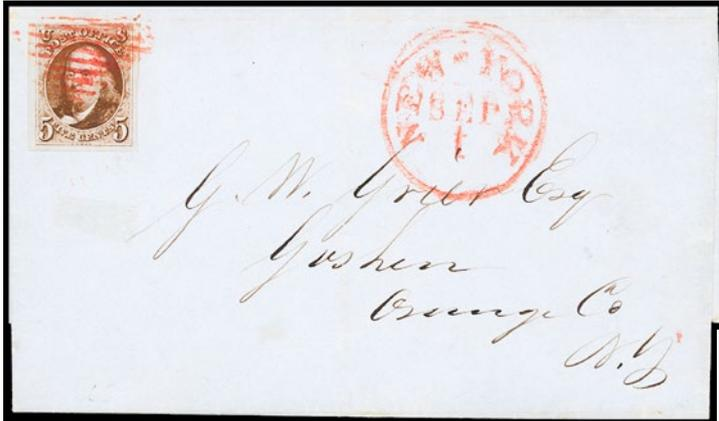 POST OFFICE
5 FIVE CENTS 5
NEW-YORK
SEP
1
G. W. Grier Esq
Goshen
Orange Co
N.Y